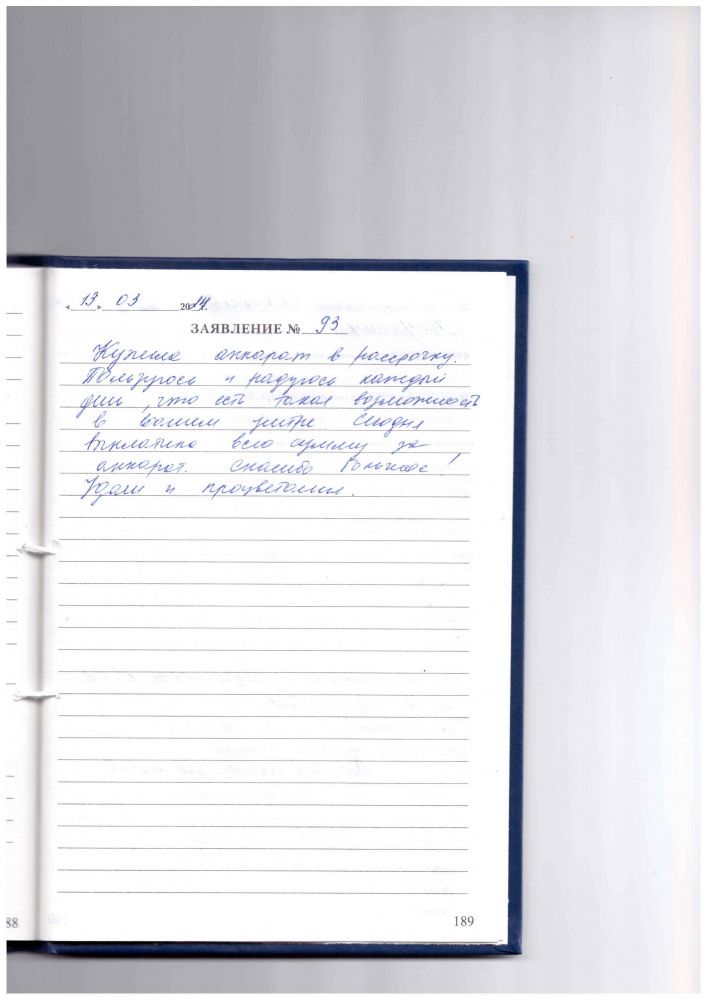 « 13 » 03 2014г.
ЗАЯВЛЕНИЕ № 93
Купила аппарат в рассрочку.
Пользуюсь и радуюсь каждый
день, что есть такая возможность
в вашем центре Сегодня
выплатила всю сумму за
аппарат. Спасибо большое!
Удачи и процветания.
88
189